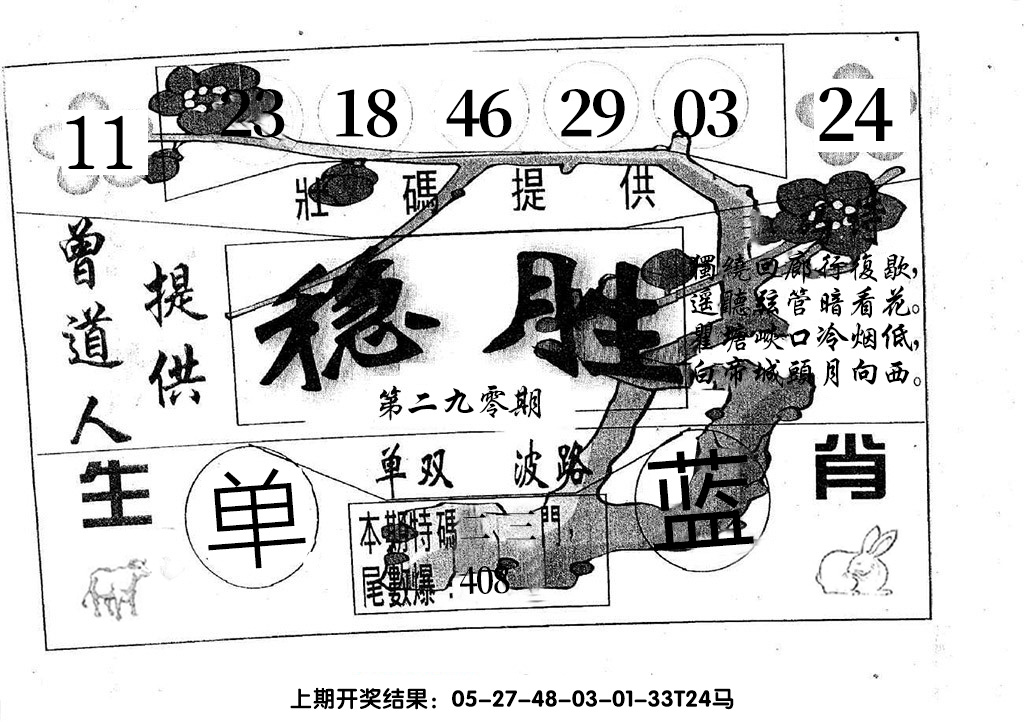 11 23 18 46 29 03 24
壯碼提供
特
曾道人
提供
稳胜
第二九零期
獨繞回廊行復歇，
遥聽弦管暗看花。
瞿塘峽口冷烟低，
白帝城頭月向西。
单双 波路
生肖
单
蓝
本期特碼二、三門，
尾數爆:408
上期开奖结果：05-27-48-03-01-33T24马